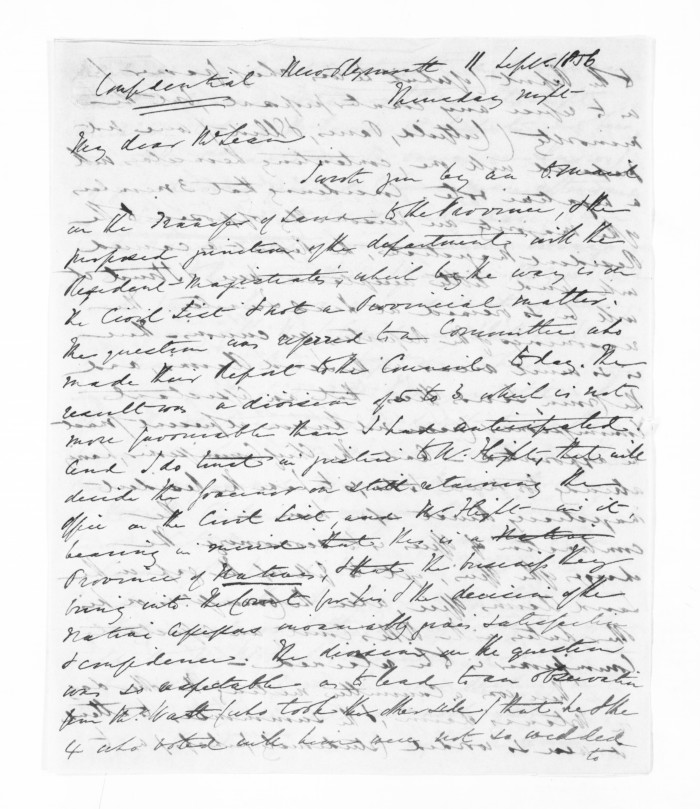 New Plymouth 11 Septr 1856
Confidential
Thursday night
My dear McLean
I wrote you by an
on the Transfer of Land to the Province, & the
proposed junction of the departments with the
Resident Magistrates, which by the way is on
the Civil List & not a Provincial matter.
The question was referred to a Committee who
made their Report to the Council to day. The
result was a division of 5 to 3 which is not
more favourable than I had anticipated
and I do trust in justice to Mr. Flight, that will
decide the Governor on still retaining the
office on the Civil List, and Mr Flight in it
bearing in mind that this is a Native
Province of Natives, & that the business they
bring into the Court for his & the decision of the
Native Assessors invariably gives satisfaction
& confidence. The division on the question
was so respectable as to lead to an observation
from Mr. Watt (who took the other side) that he & the
4 who voted with him were not so wedded
to